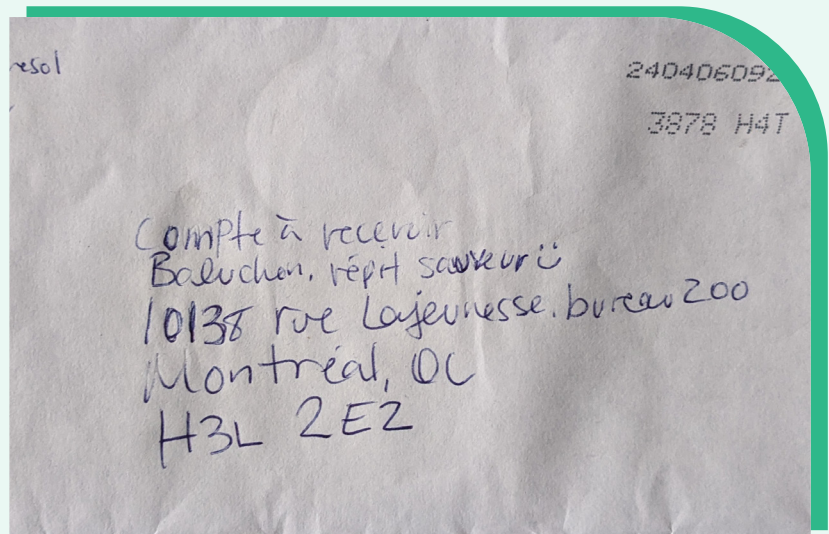 240406092
3878 H4T
Compte à recevoir
Baluchon, répit sauveur ü
10138 rue Lajeunesse, bureau 200
Montréal, QC
H3L 2E2